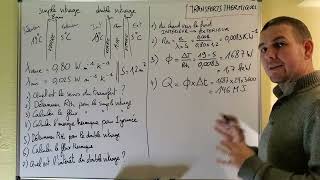 simple vitrage
double vitrage
Intérieur
Extérieur
19°C
5°C
19°C
5°C
S = 1,2 m²
λverre = 0,80 W m⁻¹ K⁻¹
λair = 0,025 W m⁻¹ K⁻¹
1) Quel est le sens du transfert ?
2) Déterminer Rth pour le simple vitrage
3) Calculer le flux thermique
4) Calculer l'énergie thermique pour 1 journée
5) Déterminer Rth pour le double vitrage
6) Calculer le flux thermique
7) Quel est l'intérêt du double vitrage ?
TRANSFERTS THERMIQUES
1) du chaud vers le froid
INTERIEUR → EXTERIEUR
2) Rth = e / λ×S
= 0,0083 K.W⁻¹
3) ϕ = ΔT / Rth = 19-5 / 0,0083 = 1687 W
≈ 1,7 kW
4) Q = ϕ × Δt = 1687×24×3600
= 146 MJ